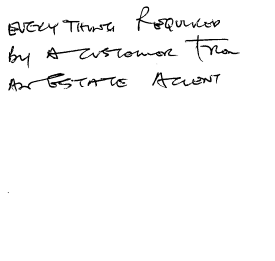 EVERYTHING REQUIRED
By A CUSTOMER FROM
AN ESTATE AGENT